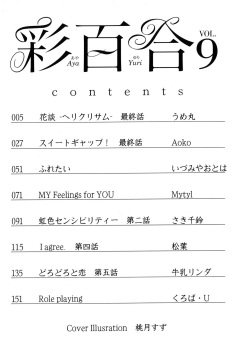 彩百合 VOL.9
あや Aya ゆり Yuri
contents
005 花談 -ヘリクリサム- 最終話 うめ丸
027 スイートギャップ! 最終話 Aoko
051 ふれたい いづみやおとは
071 MY Feelings for YOU Mytyl
091 虹色センシビリティー 第二話 さき千鈴
115 I agree. 第四話 松葉
135 どろどろと恋 第五話 牛乳リンダ
151 Role playing くろば・U
Cover Illusration 桃月すず